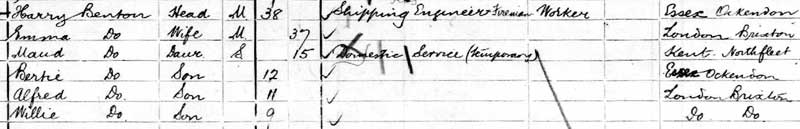 Harry Benton Head M 38 Shipping Engineer & Fireman Worker Essex Ockendon
Emma Do Wife M 37 London Brixton
Maud Do Daur S 15 Domestic Service (temporary) Kent Northfleet
Bertie Do Son 12 Essex Ockendon
Alfred Do Son 11 London Brixton
Willie Do Son 9 Do Do